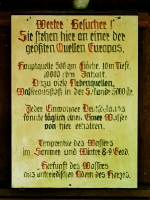 Werter Besucher!
Sie stehen hier an einer der
größten Quellen Europas.
Hauptquelle 500 qm Fläche, 10 m Tief,
Inhalt.
Dazu viele Nebenquellen,
Wasserausstoß in der Sekunde 5000 ltr.
Jeder Einwohner Deutschlands
könnte täglich einen Eimer Wasser
von hier erhalten.
Temperatur des Wassers
im Sommer und Winter 8-9 Grad.
Herkunft des Wassers
aus unterirdischen Adern des Harzes.